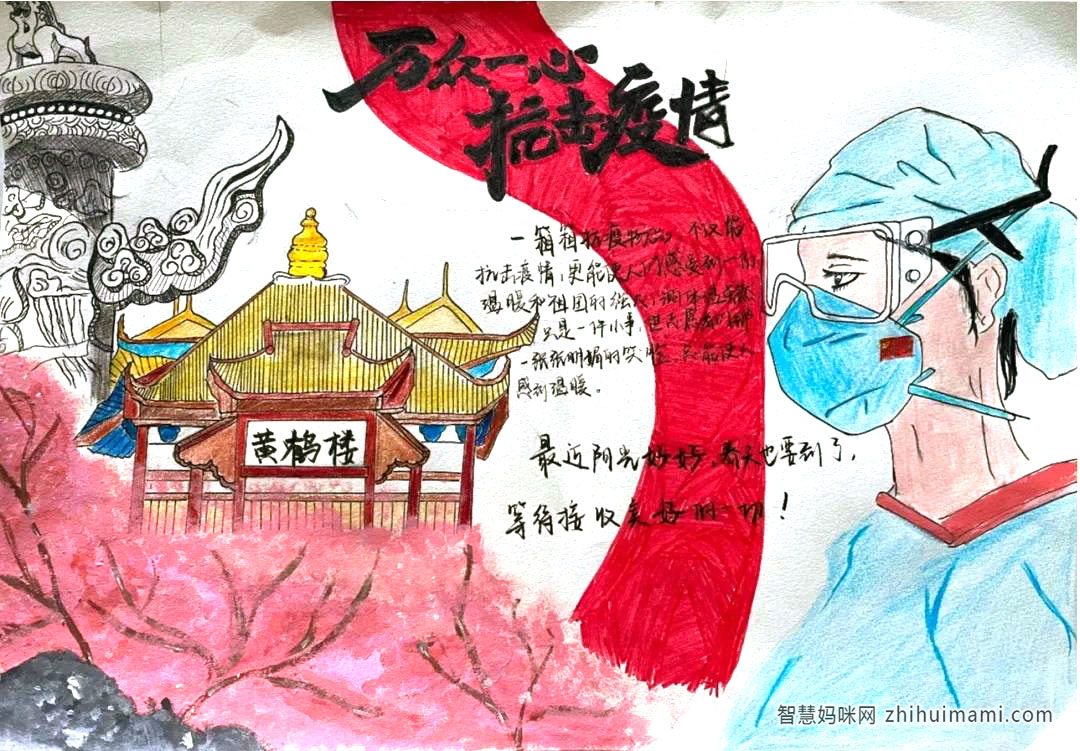 万众一心
抗击疫情
一箱箱抗疫物资，不仅能
抗击疫情，更能使人们感受到一份
温暖和祖国的强大，
只是一件小事，
一张张明媚的笑脸，只能使人
感到温暖。
最近阳光好好，春天也要到了，
等待接收美好的一切！
黄鹤楼
智慧妈咪网 zhihuimami.com